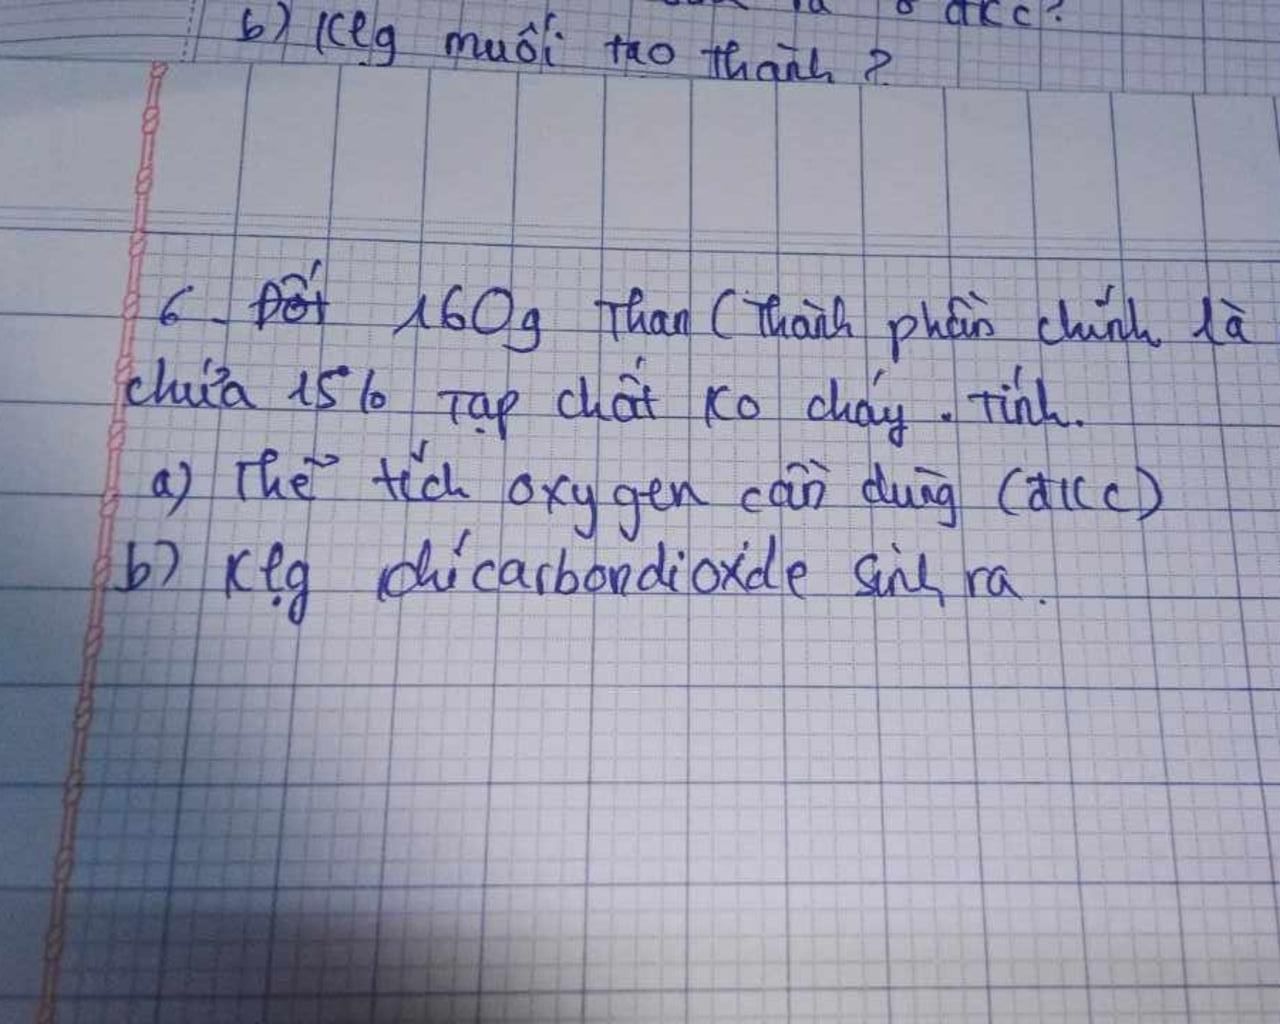 là đkc?
b) Klg muối tạo thành ?
6. Đốt 160g Than (Thành phần chính là
chứa 15% Tạp chất ko cháy. Tính.
a) Thể tích oxygen cần dùng (đkc)
b) Klg khí carbondioxide sinh ra.